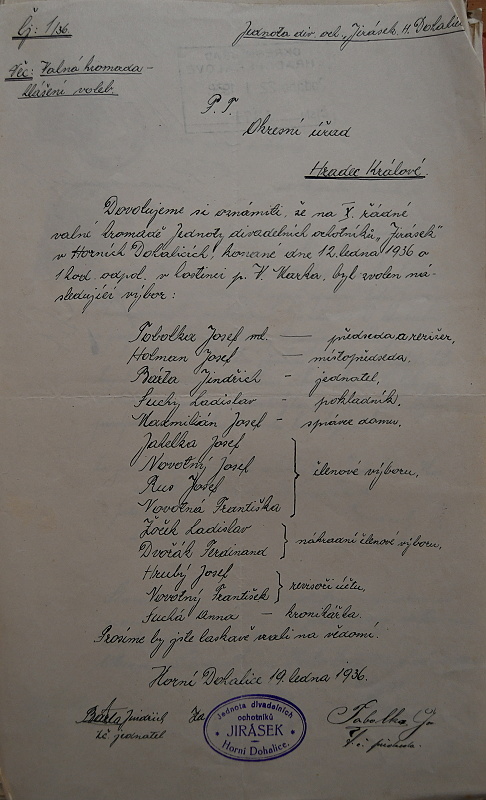 Čj: 1/36.
Jednota div. och. „Jirásek" H. Dohalice
Věc: Valná hromada –
hlášení voleb.
P. T.
Okresní úřad
Hradec Králové.
Dovolujeme si oznámiti, že na X. řádné
valné hromadě Jednoty divadelních ochotníků „Jirásek"
v Horních Dohalicích, konané dne 12. ledna 1936 o
1 hod. odpol. v hostinci p. V. Marka, byl zvolen ná-
sledující výbor:
Tobolka Josef ml. — předseda a režisér,
Holman Josef — místopředseda,
Bárta Jindřich – jednatel,
Suchý Ladislav – pokladník.
Maxmilián Josef – správce domu.
Jahelka Josef
Novotný Josef
Rus Josef
Novotná Františka
členové výboru,
Zoček Ladislav
Dvořák Ferdinand
náhradní členové výboru,
Hrubý Josef
Novotný František
revisoři účtu,
Suchá Anna — kronikářka.
Prosíme by jste laskavě vzali na vědomí.
Horní Dohalice 19. ledna 1936.
Bárta Jindřich
t. č. jednatel
Za
Jednota divadelních
ochotníků
JIRÁSEK
Horní Dohalice.
Tobolka
t. č. předseda.